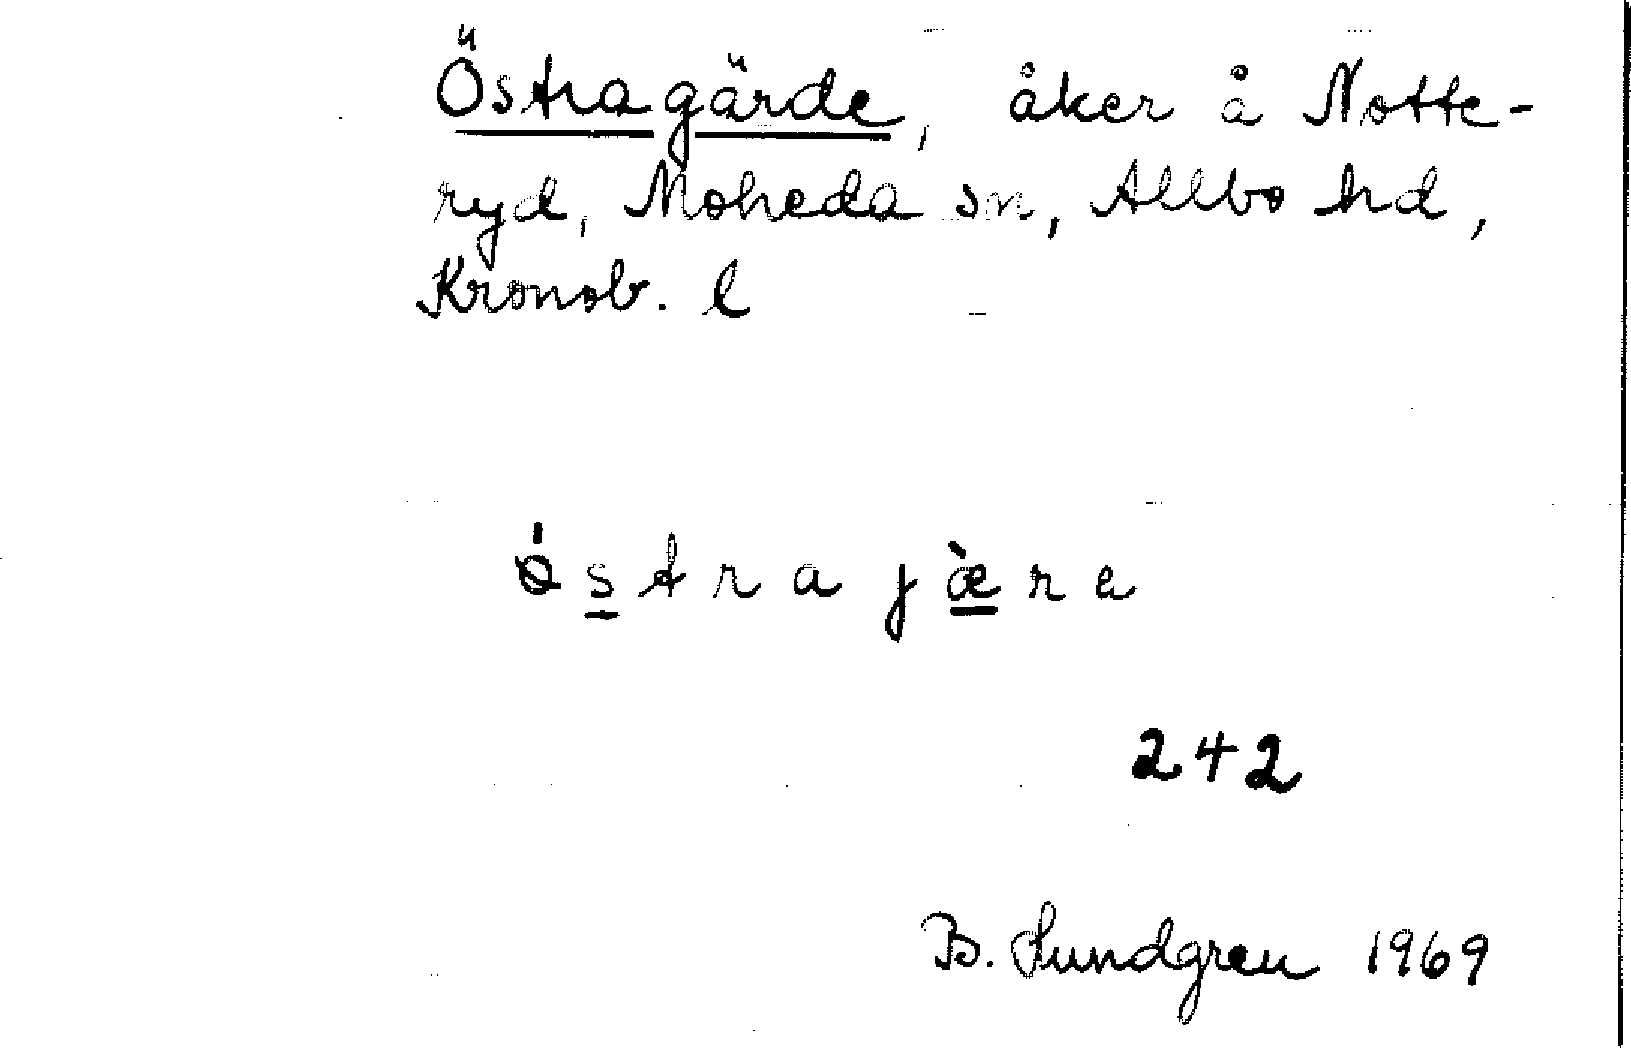 Östragärde, åker å Notte-
ryd, Moheda sn, Allbo hd,
Kronob. l
ǿstrajæ̀re
242
B. Sundgren 1969